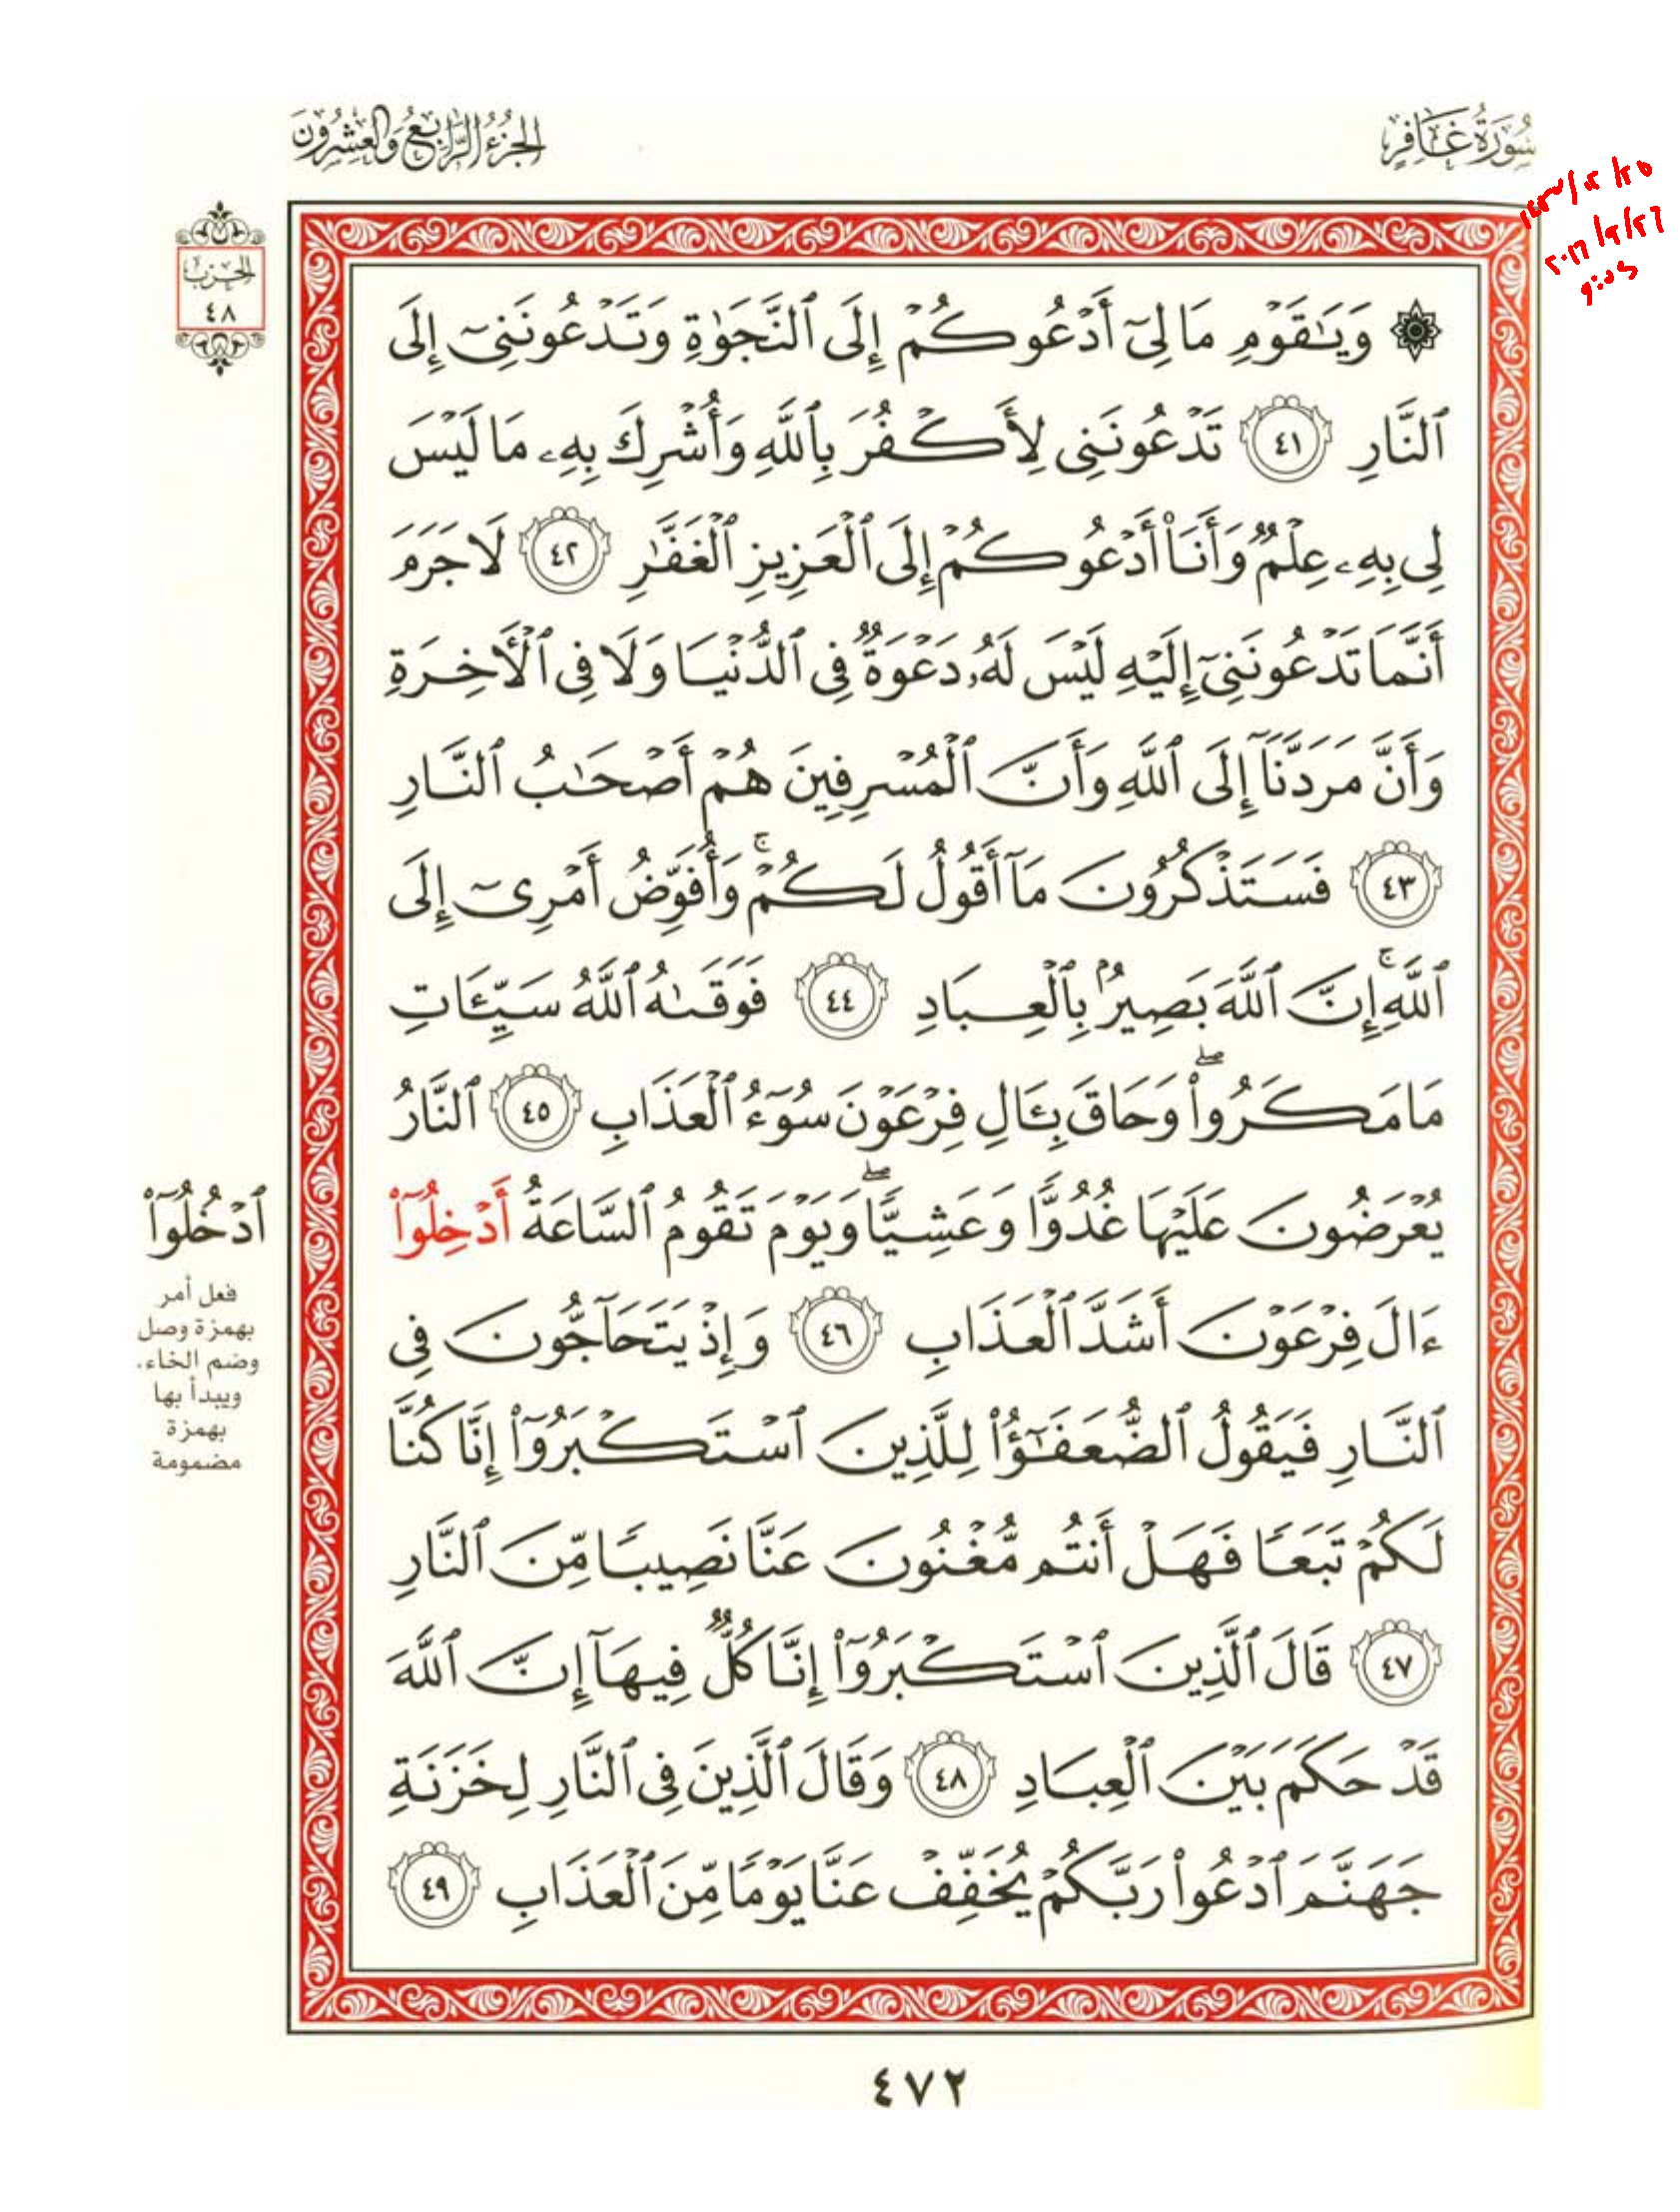 سُورَةُ غَافِرٍ
الجُزْءُ الرَّابِعُ وَالعِشْرُونَ
الحزب
٤٨
۞ وَيَٰقَوْمِ مَا لِىٓ أَدْعُوكُمْ إِلَى ٱلنَّجَوٰةِ وَتَدْعُونَنِىٓ إِلَى
ٱلنَّارِ ٤١ تَدْعُونَنِى لِأَكْفُرَ بِٱللَّهِ وَأُشْرِكَ بِهِۦ مَا لَيْسَ
لِى بِهِۦ عِلْمٌ وَأَنَا۠ أَدْعُوكُمْ إِلَى ٱلْعَزِيزِ ٱلْغَفَّٰرِ ٤٢ لَا جَرَمَ
أَنَّمَا تَدْعُونَنِىٓ إِلَيْهِ لَيْسَ لَهُۥ دَعْوَةٌ فِى ٱلدُّنْيَا وَلَا فِى ٱلْأَخِرَةِ
وَأَنَّ مَرَدَّنَآ إِلَى ٱللَّهِ وَأَنَّ ٱلْمُسْرِفِينَ هُمْ أَصْحَٰبُ ٱلنَّارِ
٤٣ فَسَتَذْكُرُونَ مَآ أَقُولُ لَكُمْ ۚ وَأُفَوِّضُ أَمْرِىٓ إِلَى
ٱللَّهِ ۚ إِنَّ ٱللَّهَ بَصِيرٌۢ بِٱلْعِبَادِ ٤٤ فَوَقَىٰهُ ٱللَّهُ سَيِّـَٔاتِ
مَا مَكَرُوا۟ ۖ وَحَاقَ بِـَٔالِ فِرْعَوْنَ سُوٓءُ ٱلْعَذَابِ ٤٥ ٱلنَّارُ
يُعْرَضُونَ عَلَيْهَا غُدُوًّا وَعَشِيًّا ۖ وَيَوْمَ تَقُومُ ٱلسَّاعَةُ أَدْخِلُوٓا۟
ءَالَ فِرْعَوْنَ أَشَدَّ ٱلْعَذَابِ ٤٦ وَإِذْ يَتَحَآجُّونَ فِى
ٱلنَّارِ فَيَقُولُ ٱلضُّعَفَٰٓؤُا۟ لِلَّذِينَ ٱسْتَكْبَرُوٓا۟ إِنَّا كُنَّا
لَكُمْ تَبَعًا فَهَلْ أَنتُم مُّغْنُونَ عَنَّا نَصِيبًا مِّنَ ٱلنَّارِ
٤٧ قَالَ ٱلَّذِينَ ٱسْتَكْبَرُوٓا۟ إِنَّا كُلٌّ فِيهَآ إِنَّ ٱللَّهَ
قَدْ حَكَمَ بَيْنَ ٱلْعِبَادِ ٤٨ وَقَالَ ٱلَّذِينَ فِى ٱلنَّارِ لِخَزَنَةِ
جَهَنَّمَ ٱدْعُوا۟ رَبَّكُمْ يُخَفِّفْ عَنَّا يَوْمًا مِّنَ ٱلْعَذَابِ ٤٩
ٱدْخُلُوٓا۟
فعل أمر
بهمزة وصل
وضم الخاء،
ويبدأ بها
بهمزة
مضمومة
٤٧٢